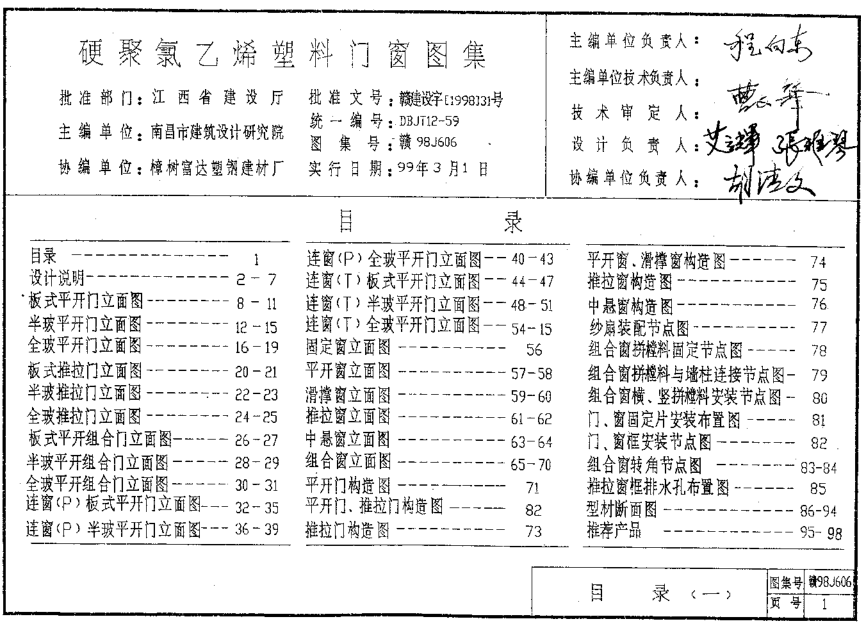 硬聚氯乙烯塑料门窗图集
批准部门：江西省建设厅
主编单位：南昌市建筑设计研究院
协编单位：樟树富达塑钢建材厂
批准文号：赣建设字[1998]31号
统一编号：DBJT12-59
图集号：赣98J606
实行日期：99年3月1日
主编单位负责人：程向东
主编单位技术负责人：
技术审定人：
设计负责人：
协编单位负责人：胡清文
目 录
目录 1
设计说明 2-7
板式平开门立面图 8-11
半玻平开门立面图 12-15
全玻平开门立面图 16-19
板式推拉门立面图 20-21
半玻推拉门立面图 22-23
全玻推拉门立面图 24-25
板式平开组合门立面图 26-27
半玻平开组合门立面图 28-29
全玻平开组合门立面图 30-31
连窗(P)板式平开门立面图 32-35
连窗(P)半玻平开门立面图 36-39
连窗(P)全玻平开门立面图 40-43
连窗(T)板式平开门立面图 44-47
连窗(T)半玻平开门立面图 48-51
连窗(T)全玻平开门立面图 54-15
固定窗立面图 56
平开窗立面图 57-58
滑撑窗立面图 59-60
推拉窗立面图 61-62
中悬窗立面图 63-64
组合窗立面图 65-70
平开门构造图 71
平开门、推拉门构造图 82
推拉门构造图 73
平开窗、滑撑窗构造图 74
推拉窗构造图 75
中悬窗构造图 76
纱扇装配节点图 77
组合窗拼樘料固定节点图 78
组合窗拼樘料与墙柱连接节点图 79
组合窗横、竖拼樘料安装节点图 80
门、窗固定片安装布置图 81
门、窗框安装节点图 82
组合窗转角节点图 83-84
推拉窗框排水孔布置图 85
型材断面图 86-94
推荐产品 95-98
目 录（一）
图集号 赣98J606
页号 1